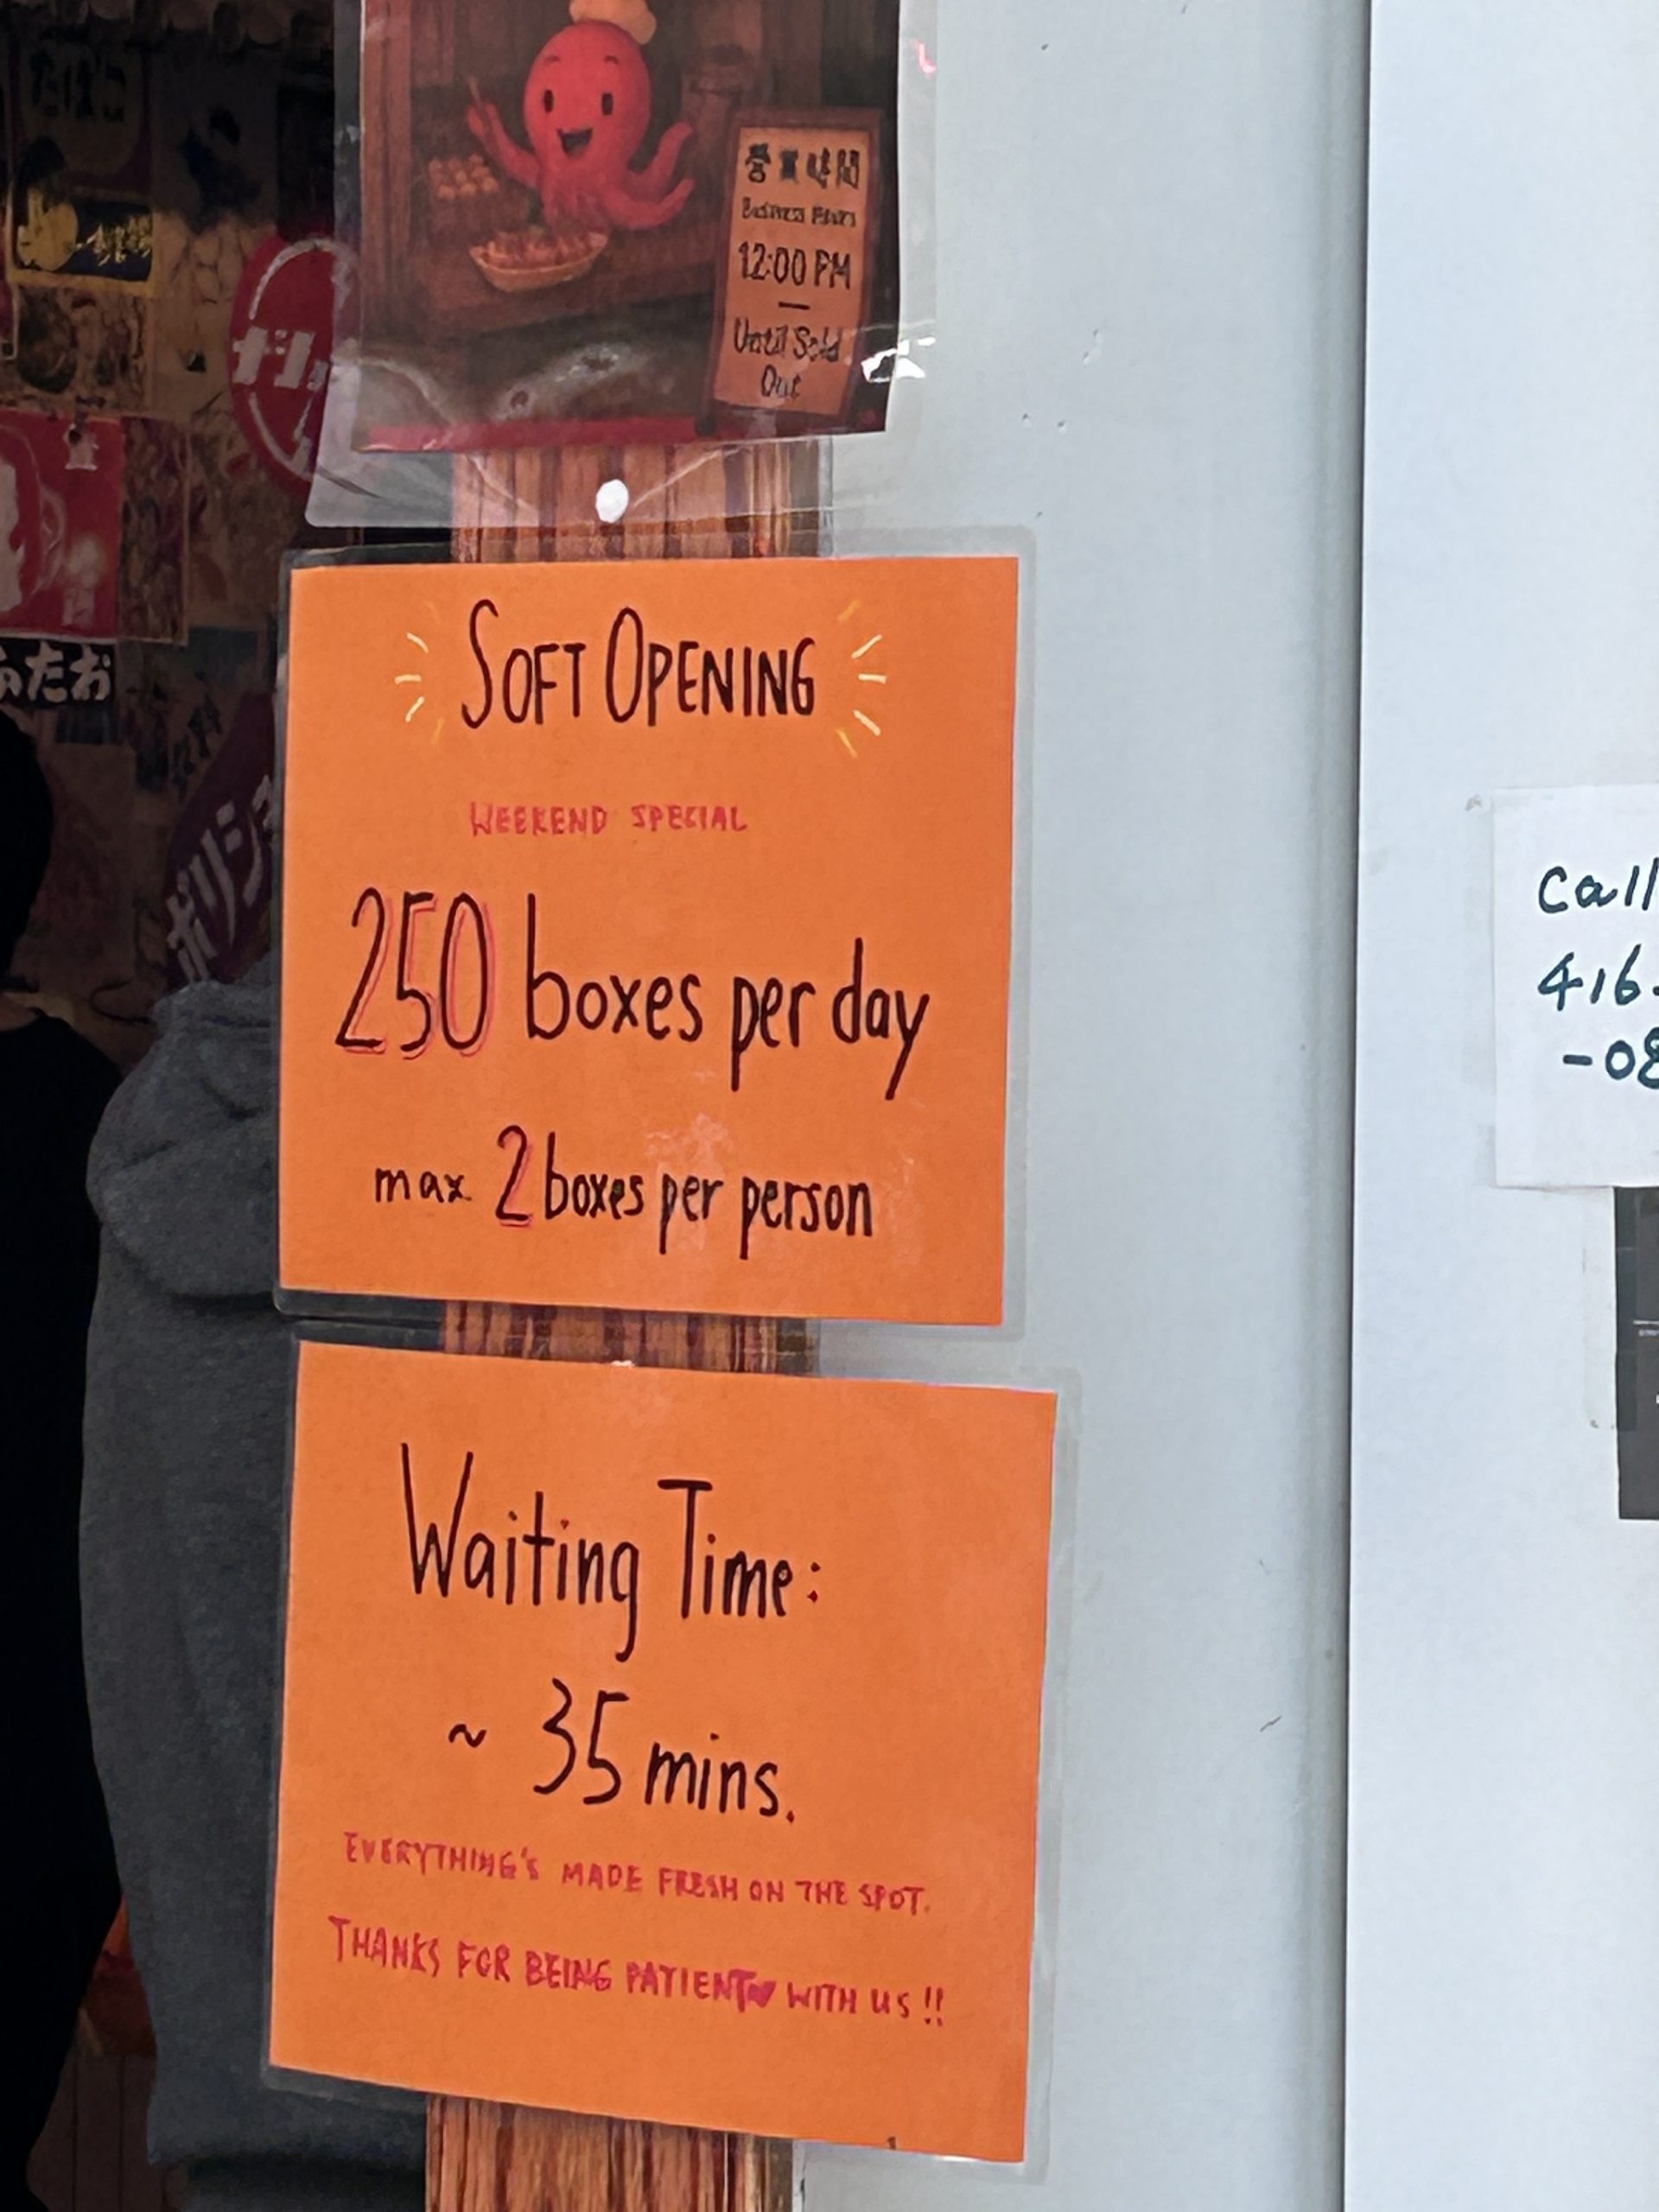 営業時間
Business Hours
12:00 PM
—
Until Sold
Out
SOFT OPENING
WEEKEND SPECIAL
250 boxes per day
max. 2 boxes per person
Waiting Time:
~ 35 mins.
EVERYTHING'S MADE FRESH ON THE SPOT.
THANKS FOR BEING PATIENT WITH US !!
Call
416-
-08
たばこ
ふたお
ポリシ